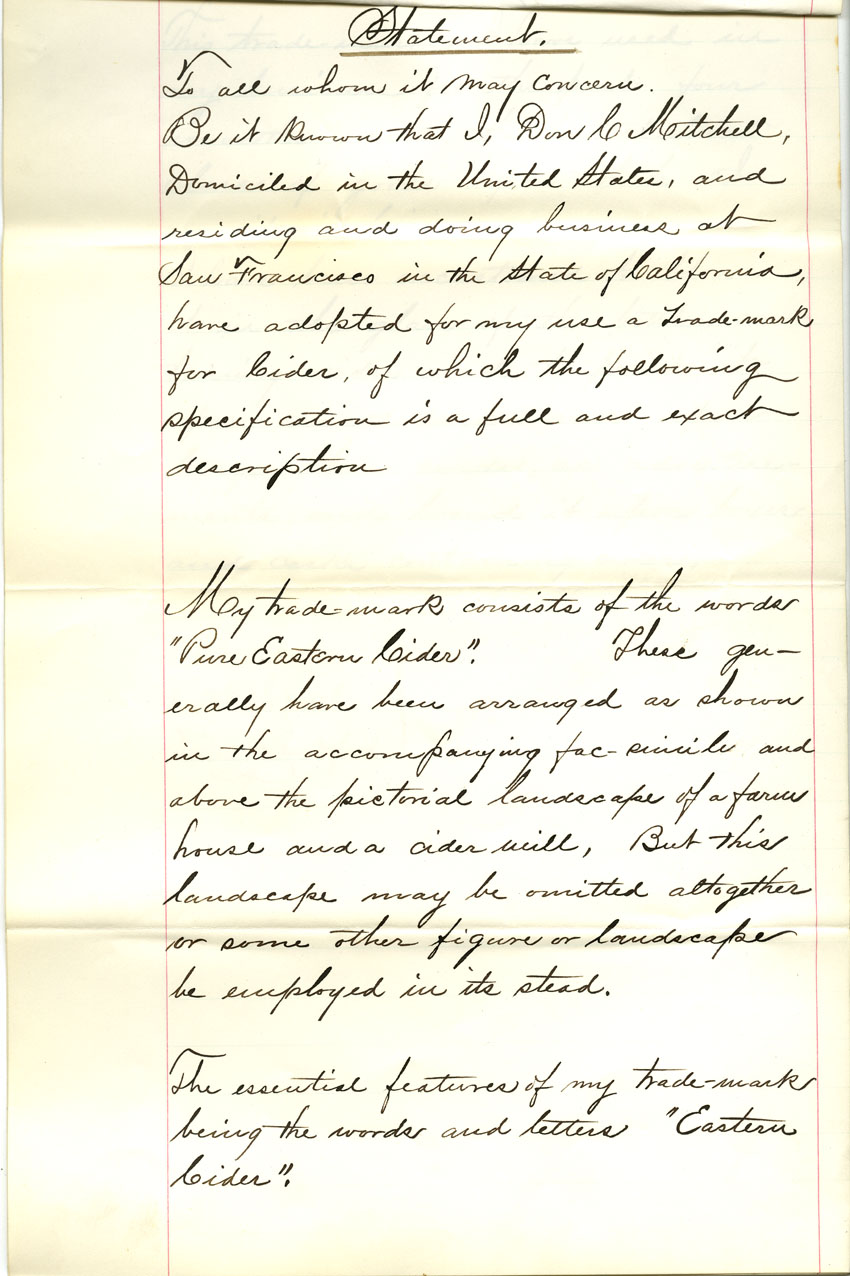 Statement.
To all whom it may concern.
Be it known that I, Don C Mitchell,
Domiciled in the United States, and
residing and doing business at
San Francisco in the State of California,
have adopted for my use a Trade-mark
for Cider, of which the following
specification is a full and exact
description
My trade-mark consists of the words
"Pure Eastern Cider". These gen-
erally have been arranged as shown
in the accompanying fac-simile and
above the pictorial landscape of a farm
house and a cider mill, But this
landscape may be omitted altogether
or some other figure or landscape
be employed in its stead.
The essential features of my trade-mark
being the words and letters "Eastern
Cider".